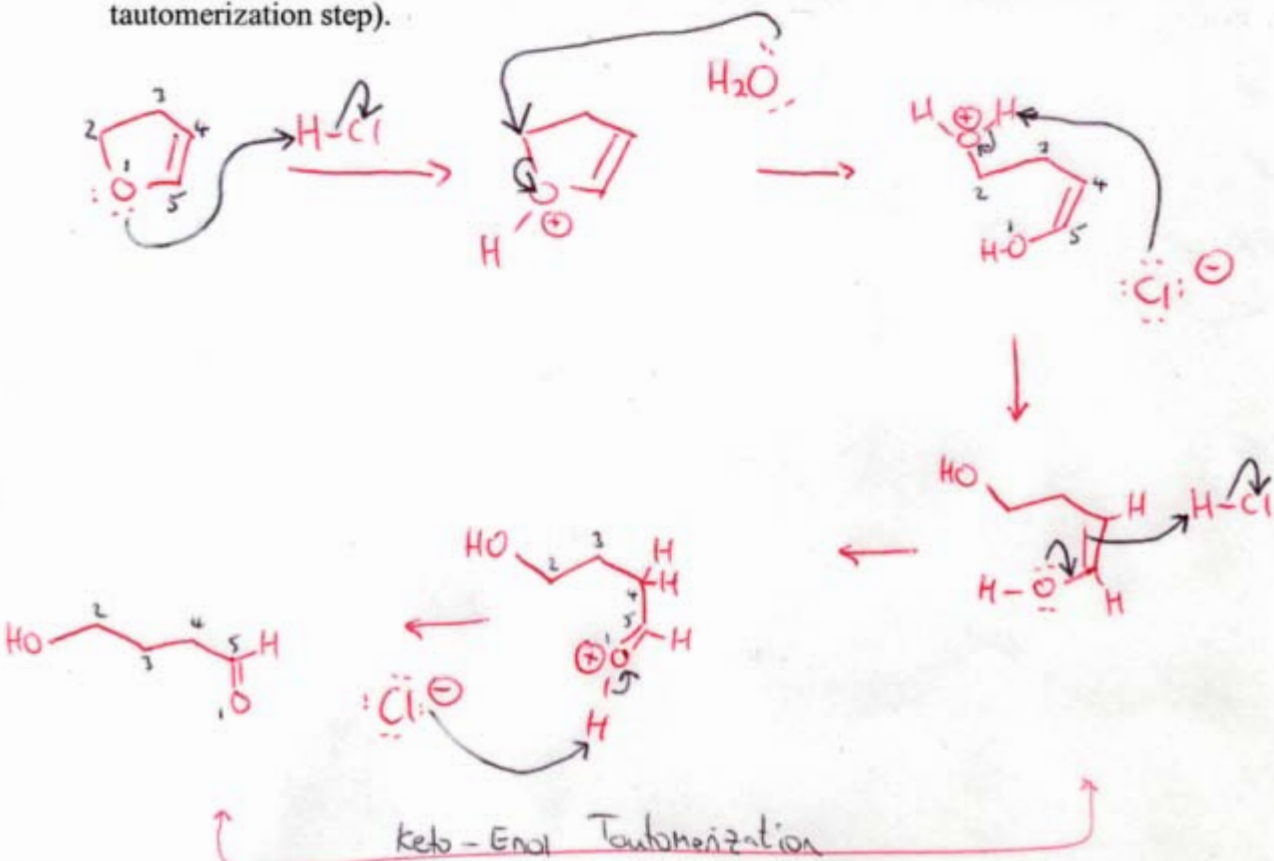 tautomerization step).
3
2
4
1
:O
5
H-Cl
H2O
O
H
⊕
H ⊕ H
O
2
3
4
H-O
1
5
:Cl: ⊖
HO
H
H-Cl
H-O
H
HO
3
2
H
H
4
5
1
H
⊕ O
H
HO
2
3
4
5
H
1
O
:Cl: ⊖
Keto-Enol Tautomerization